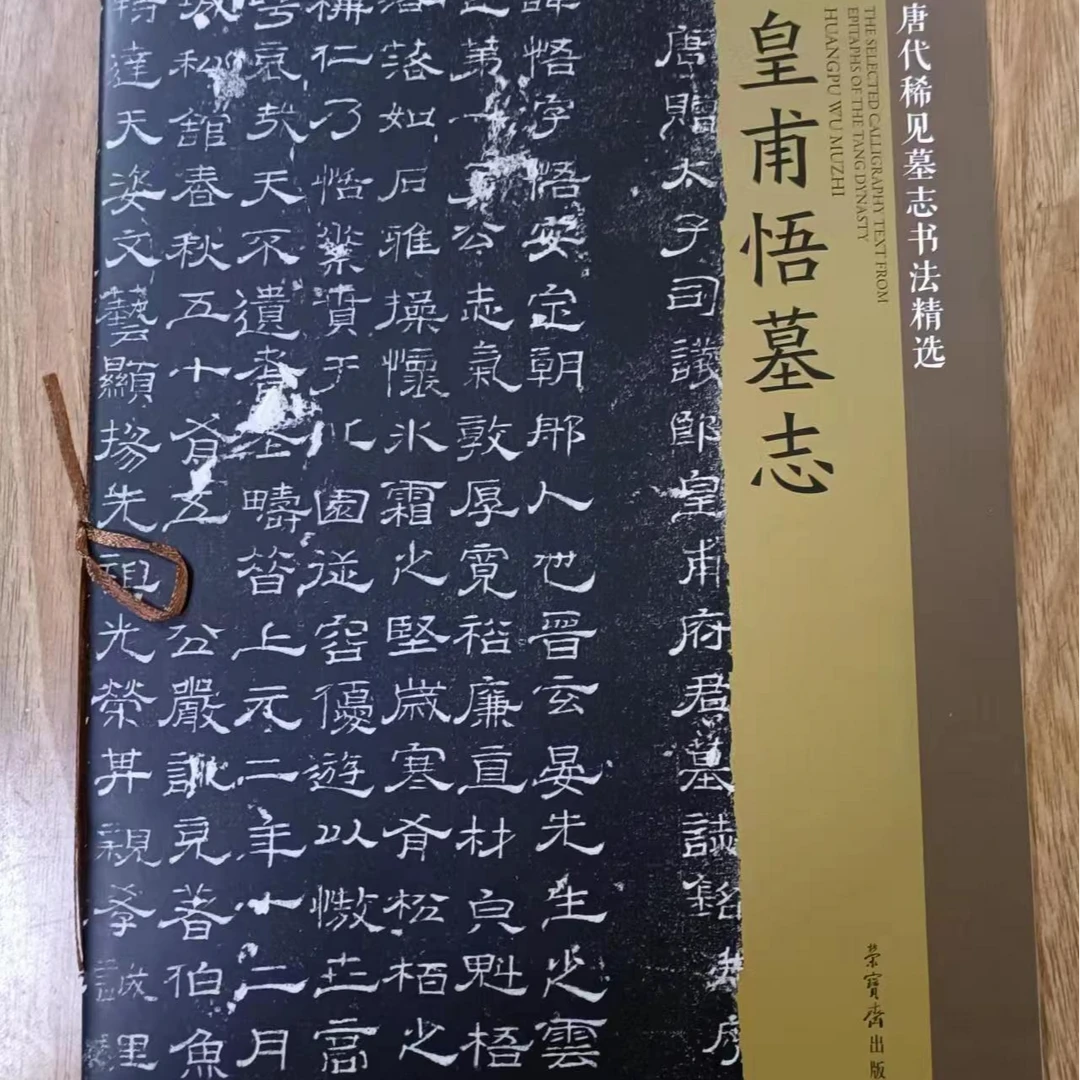 唐代稀见墓志书法精选
THE SELECTED CALLIGRAPHY TEXT FROM
EPITAPHS OF THE TANG DYNASTY
HUANGPU WU MUZHI
皇甫悟墓志
榮寶齋出版
唐贈太子司議郎皇甫府君墓誌銘并序
諱悟字悟安定朝那人也晉玄晏先生之雲
第公志氣敦厚寬裕廉直材皃魁梧
落如石雅操懷氷霜之堅歲寒有松栢之
稱仁乃恬賁于丘園從容優遊以慠世高
哀哉天不遺耆疇昔上元二年十二月
城私舘春秋五十有五公嚴訓見著伯魚
達天姿文藝顯揚先祖光榮其親孝誠里